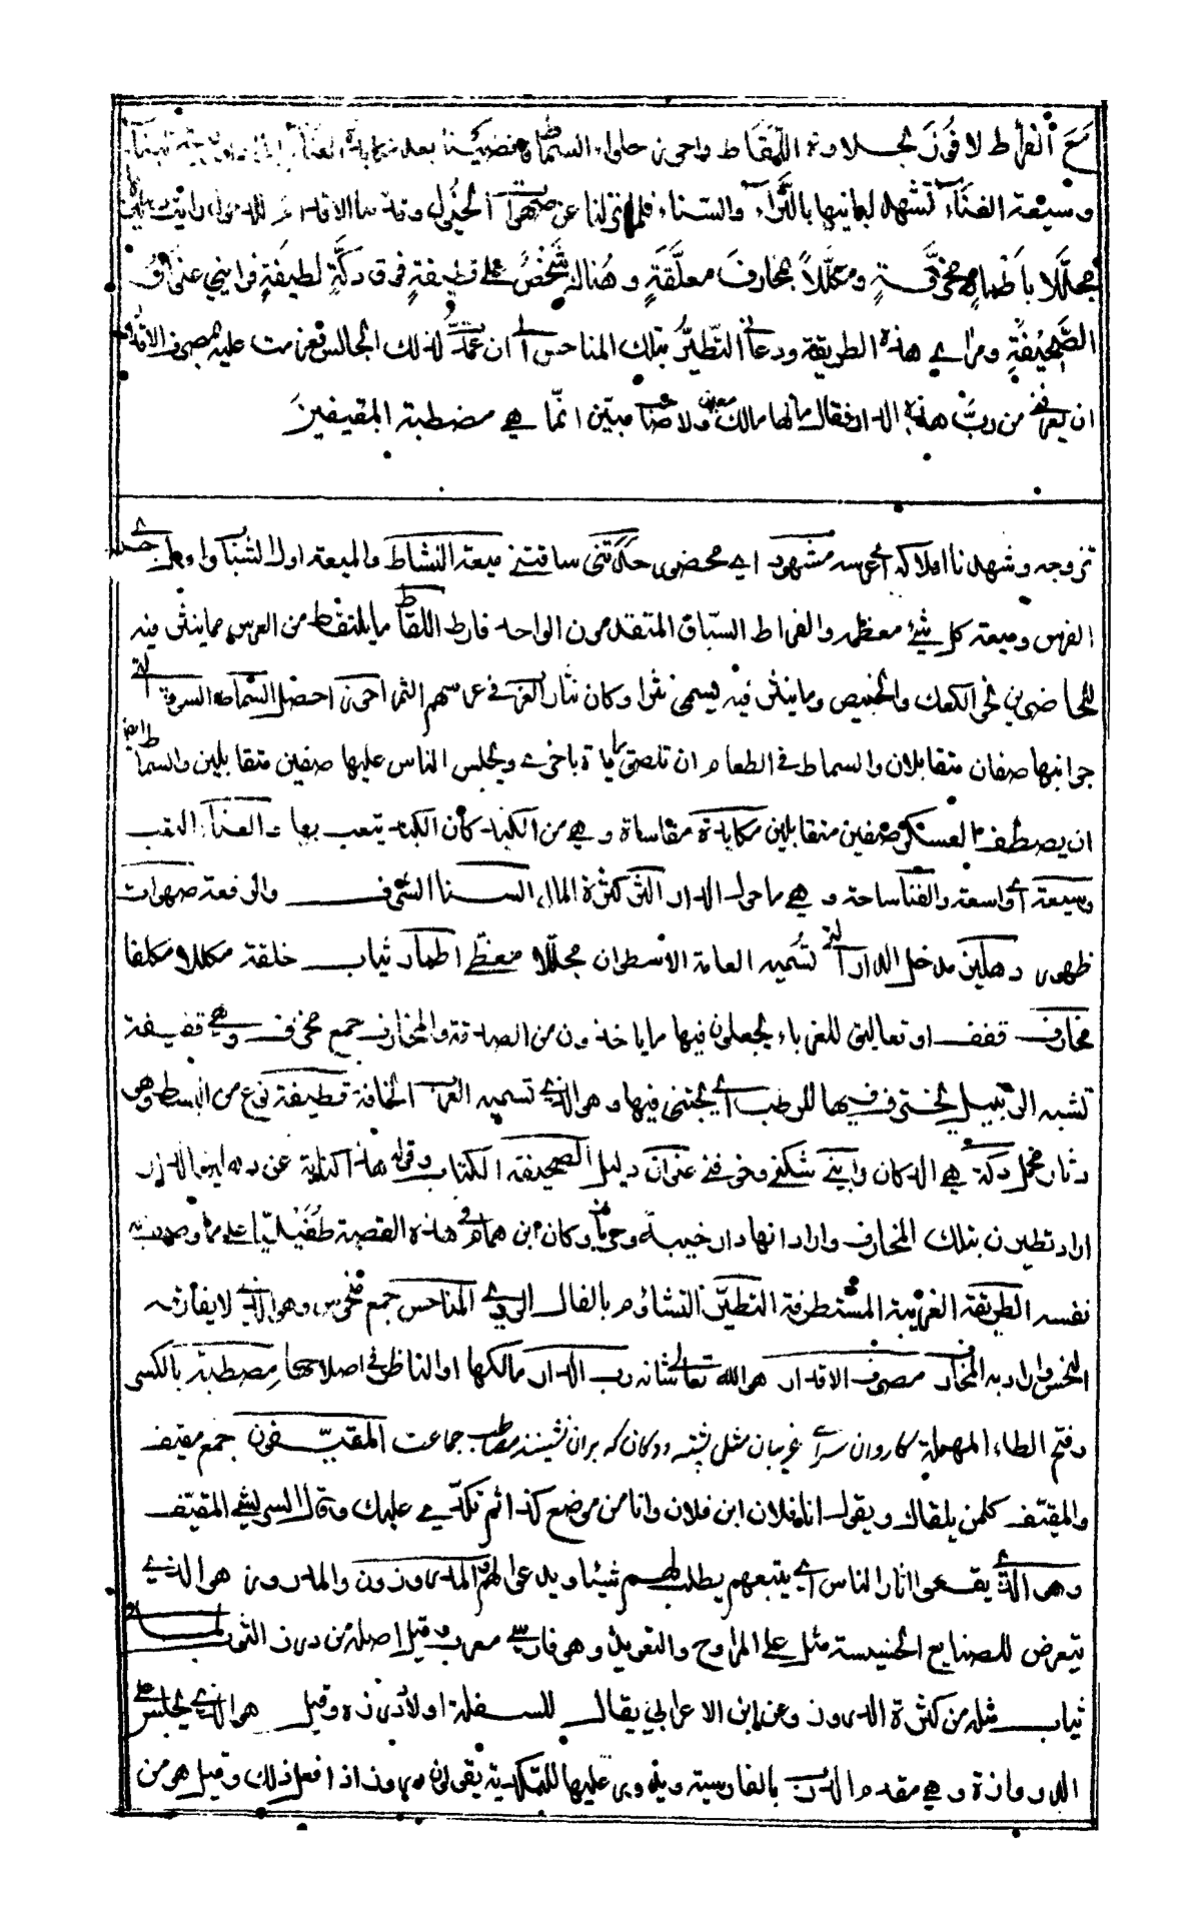 مَعَ الفُرّاط لا فُوزَ بحلاوة اللَّقَاط واحرز حلواء السماط فضيت بعد مكابدة العنا
وسيعة الفناء تشهد لبانيها بالثراء والسناء فلما نزلنا عن صهوات الخيول وقدّمنا الاقدام للدخول رأيت دهليزا
مجللا باطمارٍ مخرّقةٍ ومكلّلاً بمخارفَ معلَّقةٍ وهناك شَخْصٌ على قطيفةٍ فوق دكَّةٍ لطيفةٍ فرابني عنوانُ
الصَّحيفةِ ومراى هذه الطريفة ودعاني التطيّرُ بتلك المناحس الى ان عمدتُ لذلك الجالس فعزمت عليه بمصرف الاقدار
ان يعرفني من ربّ هذه الدار فقال ليس لها مالك معين ولا صاحب مبين انّما هي مصطبة المقيفينَ
تزوجه وشهدنا املاكه اى عرسه مشهود اى محضور حدتنى ساقتنى ميعة النشاط والميعة اول الشباب واول جرى
الفرس وميعة كل شئ معظمه والفراط السبّاق المتقدمون الواحد فارط اللقاط ما يلتقط من العرس مما ينثر فيه
للحاضرين نحو الكعك والخبيص وما ينثر فيه يسمى نثرا وكان نثار العرب فى عرسهم التمر احرز احضر السماط السفرة التى
جوانبها صفان متقابلان والسماط فى الطعام ان تلصق مائدة باخرى ويجلس الناس عليها صفين متقابلين والسماط ايضا
ان يصطف العسكر صفين متقابلين مكابدة مقاساة وهي من الكبد كأن الكبد يتعب بها والعناء التعب
وسيعة اى واسعة والفناء ساحة وهي ما حول الدار الثرى كثرة المال السنا الشرف والرفعة صهوات
ظهور دهليز مدخل الدار التى تسميه العامة الاسطوان مجللا مغطى اطمار ثياب خلقة مكللا مكلفا
مخارف قفف او تعاليق للغرباء يجعلون فيها ما ياخذون من الصدقة والمخارف جمع مخرف وهي قفيفة
تشبه الزنبيل يخترف فيها الرطب اى يجتنى فيها وهو الذى تسميه العرب الخافة قطيفة نوع من البسط وهو
دثار مخمل دكة هي الدكان رابنى شككنى وخوفنى عنوان دليل الصحيفة الكتاب وقوله هذا كناية عن دهليز الدار
اراد تطيرت بتلك المخارف واراد انها دار خيبة وحرمان وكان ابن همام فى هذه القصة طُفَيليّا على ما وصف به
نفسه الطريفة الغريبة المستطرفة التطيّر التشاؤم بالفال الردى المناحس جمع منحوس وهو الذى لا يفارقه
النحس واراد به المخارف مصرف الاقدار هو الله تعالى شانه رب الدار مالكها او الناظر فى اصلاحها مصطبة بالكسر
وفتح الطاء المهملة كاروان سراى غريبان مثل پشته ودكان كه بران نشينند مصاطب جماعت المقيّفون جمع مقيف
والمقيف كلمن يلقاك ويقول انا فلان ابن فلان وانا من موضع كذا ثم يكدّى عليك وقال الشريشى المقيف
وهو الذى يقفو آثار الناس اى يتبعهم يطلب لهم شيئا ويدعو لهم والمدروزون والمدروز هو الذى
يتعرض للصنايع الخسيسة مثل عمل المراوح والتعويذ وهو فارسى معرب وقيل اصله من درز الثوب
ثياب مثله من كثرة الدروز وعن ابن الاعرابي يقال للسفلة اولاد درزة وقيل هو الذى يجلس على
الدروازة وهي مقدم الدرب بالفارسية ويدور عليها للتكدية يقولون دروز اذا فعل ذلك وقيل هو من